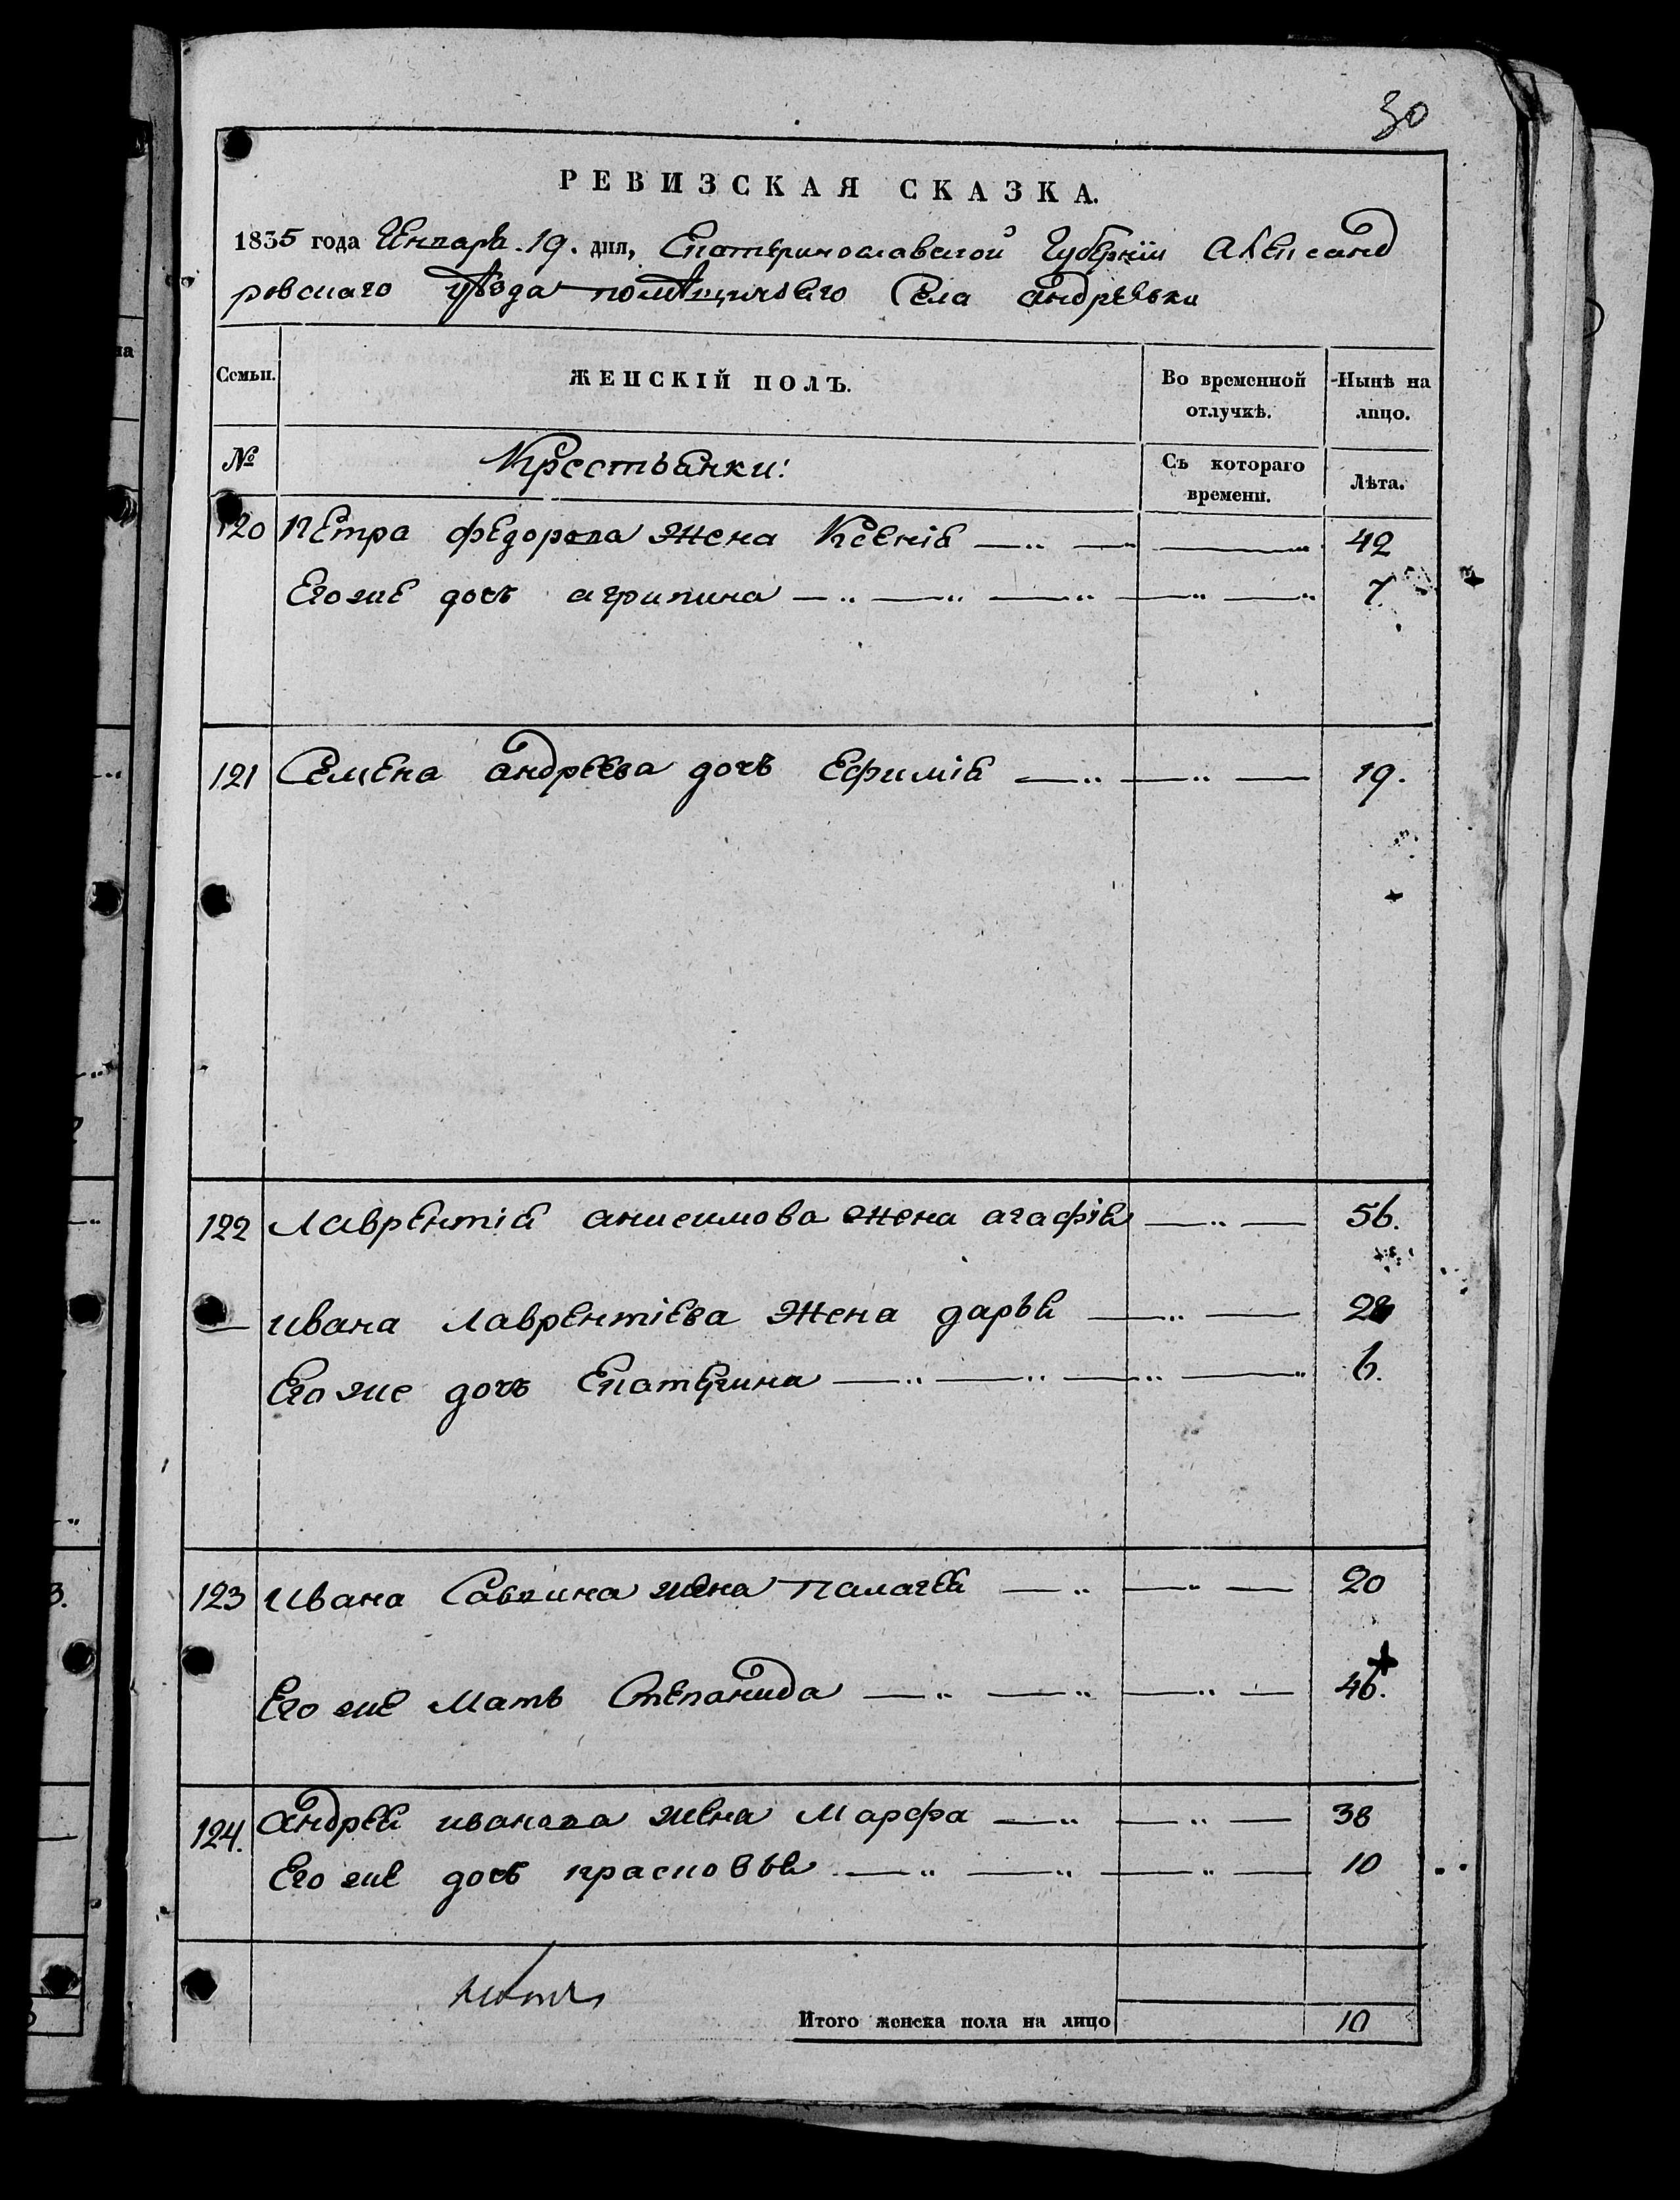 30
РЕВИЗСКАЯ СКАЗКА.
1835 года Генваря 19. дня, Екатеринославской Губерніи Александ
ровскаго уѣзда помѣщичьяго Села андреевки
Семьи. ЖЕНСКІЙ ПОЛЪ. Во временной отлучкѣ. Нынѣ на лицо.
№ Крестьянки: Съ котораго времени. Лѣта.
120 Петра федорова жена Ксенія 42
Его же дочь агрипина 7
121 Семена андреева дочь Ефимія 19.
122 Лаврентія анисимова жена агафія 56.
ивана лаврентіева жена дарья
Его же дочь Екатерина 6.
123 ивана Савкина жена палагея 20
Его же мать Степанида 46.
124. андрея иванова жена марфа 38
Его же дочь прасковья 10
Итого женска пола на лицо 10